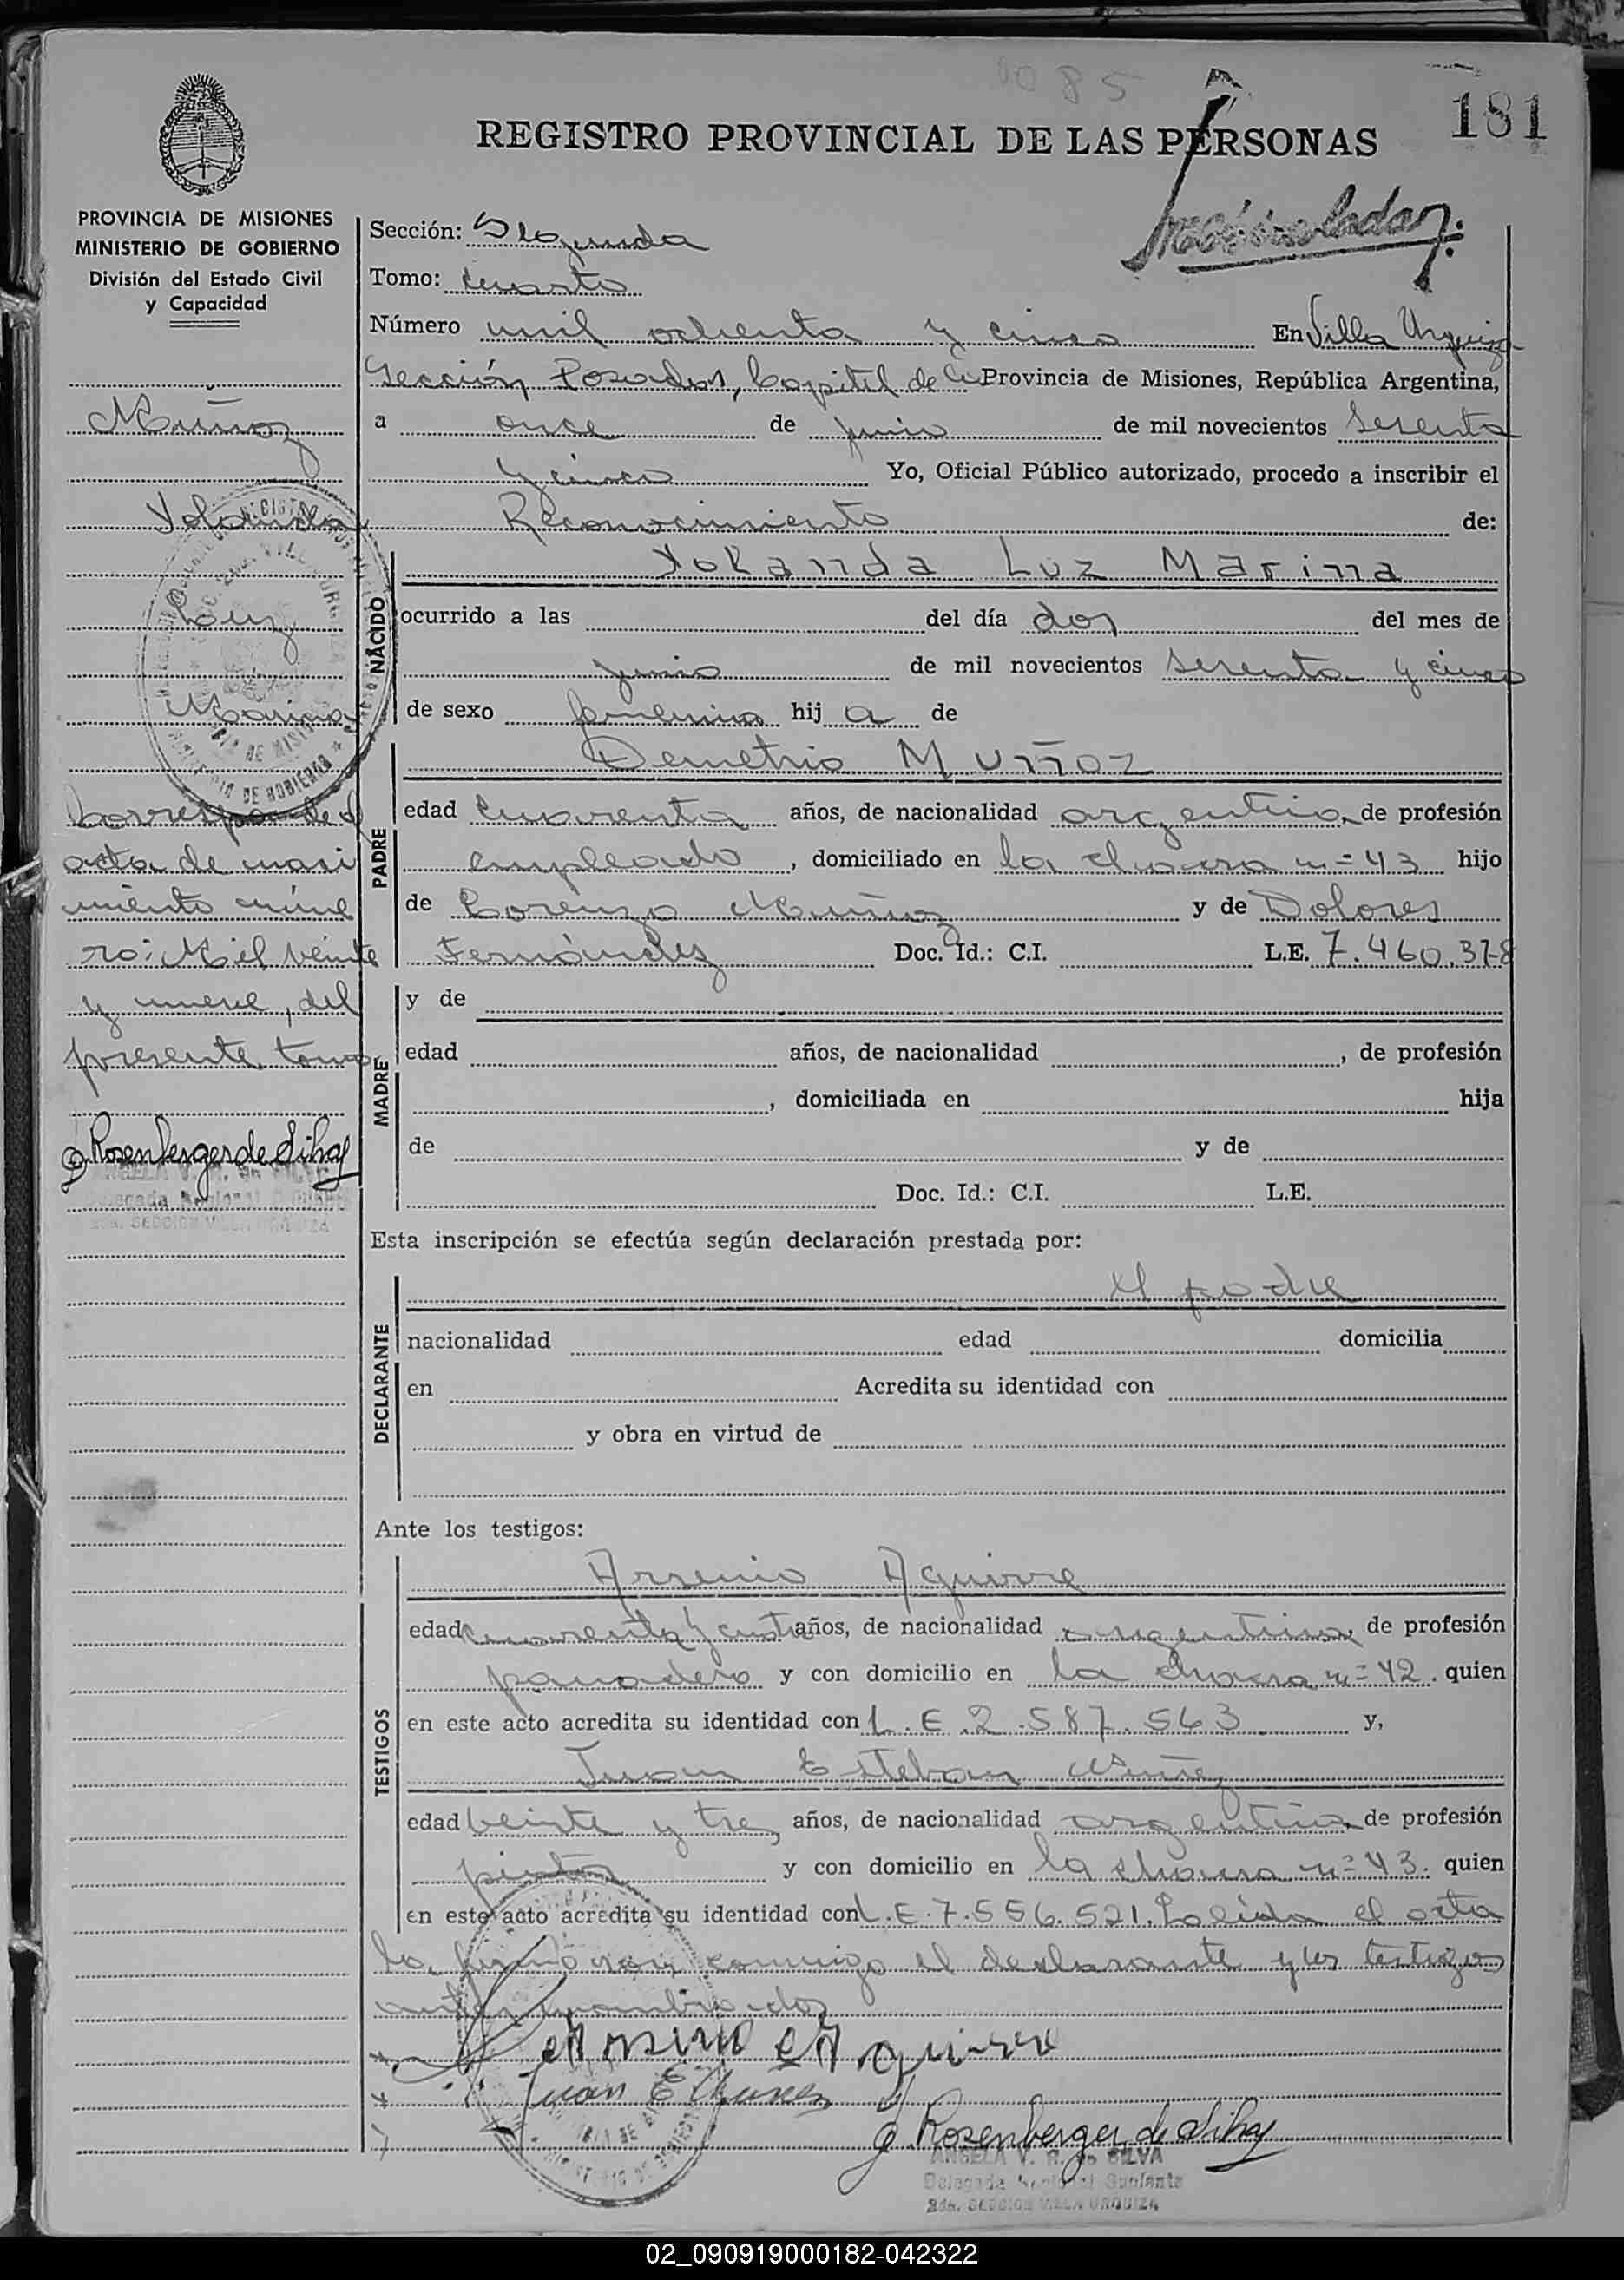 1085
181
REGISTRO PROVINCIAL DE LAS PERSONAS
PROVINCIA DE MISIONES
MINISTERIO DE GOBIERNO
División del Estado Civil
y Capacidad
Sección: Segunda
Tomo: cuarto
Número mil ochenta y cinco En Villa Urquiza
Sección Posadas, Capital de la Provincia de Misiones, República Argentina,
a once de junio de mil novecientos sesenta
y cinco Yo, Oficial Público autorizado, procedo a inscribir el
Reconocimiento de:
Muñoz
Yolanda
Luz
Marina
Corresponde al
acta de naci
miento núme
ro: Mil veinte
y nueve, del
presente tomo
Rosenberger de Silva
ANGELA V. R. de SILVA
Delegada Regional Suplente
2da. SECCION VILLA URQUIZA
NACIDO
Yolanda Luz Marina
ocurrido a las del día dos del mes de
junio de mil novecientos sesenta y cinco
de sexo femenino hij a de
Demetrio Muñoz
PADRE
edad cuarenta años, de nacionalidad argentina, de profesión
empleado, domiciliado en la chacra nº 43 hijo
de Lorenzo Muñoz y de Dolores
Fernández Doc. Id.: C.I. L.E. 7.460.378
MADRE
y de
edad años, de nacionalidad , de profesión
, domiciliada en hija
de y de
Doc. Id.: C.I. L.E.
Esta inscripción se efectúa según declaración prestada por:
el padre
DECLARANTE
nacionalidad edad domicilia
en Acredita su identidad con
y obra en virtud de
Ante los testigos:
TESTIGOS
Arsenio Aguirre
edad cuarenta y cuatro años, de nacionalidad argentina, de profesión
panadero y con domicilio en la chacra nº 42. quien
en este acto acredita su identidad con L.E. 2.587.563 y,
Juan Esteban
edad veinte y tres años, de nacionalidad argentina, de profesión
pintor y con domicilio en la chacra nº 43. quien
en este acto acredita su identidad con L.E. 7.556.521. Leída el acta
la firmaron conmigo el declarante y los testigos
antes nombrados
Arsenio Aguirre
Juan E
Rosenberger de Silva
ANGELA V. R. de SILVA
Delegada Regional Suplente
2da. SECCION VILLA URQUIZA
02_090919000182-042322